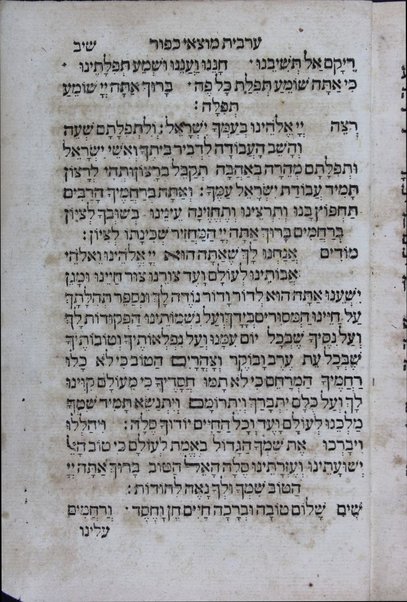 ערבית מוצאי כפור שיב
רֵיקָם אַל תְּשִׁיבֵנוּ׃ חָנֵּנוּ וַעֲנֵנוּ וּשְׁמַע תְּפִלָּתֵינוּ׃
כִּי אַתָּה שׁוֹמֵעַ תְּפִלַּת כָּל פֶּה׃ בָּרוּךְ אַתָּה יְיָ שׁוֹמֵעַ
תְּפִלָּה׃
רְצֵה יְיָ אֱלֹהֵינוּ בְּעַמְּךָ יִשְׂרָאֵל׃ וְלִתְפִלָּתָם שְׁעֵה׃
וְהָשֵׁב הָעֲבוֹדָה לִדְבִיר בֵּיתֶךָ וְאִשֵּׁי יִשְׂרָאֵל
וּתְפִלָּתָם מְהֵרָה בְּאַהֲבָה תְקַבֵּל בְּרָצוֹן וּתְהִי לְרָצוֹן
תָּמִיד עֲבוֹדַת יִשְׂרָאֵל עַמֶּךָ׃ וְאַתָּה בְּרַחֲמֶיךָ הָרַבִּים
תַּחְפּוֹץ בָּנוּ וְתִרְצֵינוּ וְתֶחֱזֶינָה עֵינֵינוּ בְּשׁוּבְךָ לְצִיּוֹן
בְּרַחֲמִים בָּרוּךְ אַתָּה יְיָ הַמַּחֲזִיר שְׁכִינָתוֹ לְצִיּוֹן׃
מוֹדִים אֲנַחְנוּ לָךְ שֶׁאַתָּה הוּא יְיָ אֱלֹהֵינוּ וֵאלֹהֵי
אֲבוֹתֵינוּ לְעוֹלָם וָעֶד צוּרֵנוּ צוּר חַיֵּינוּ וּמָגֵן
יִשְׁעֵנוּ אַתָּה הוּא לְדוֹר וָדוֹר נוֹדֶה לָךְ וּנְסַפֵּר תְּהִלָּתֶךָ
עַל חַיֵּינוּ הַמְּסוּרִים בְּיָדֶךָ וְעַל נִשְׁמוֹתֵינוּ הַפְּקוּדוֹת לָךְ
וְעַל נִסֶּיךָ שֶׁבְּכָל יוֹם עִמָּנוּ וְעַל נִפְלְאוֹתֶיךָ וְטוֹבוֹתֶיךָ
שֶׁבְּכָל עֵת עֶרֶב וָבוֹקֶר וְצָהֳרָיִם הַטּוֹב כִּי לֹא כָלוּ
רַחֲמֶיךָ הַמְרַחֵם כִּי לֹא תַמּוּ חֲסָדֶיךָ כִּי מֵעוֹלָם קִוִּינוּ
לָךְ וְעַל כֻּלָּם יִתְבָּרַךְ וְיִתְרוֹמָם וְיִתְנַשֵּׂא תָּמִיד שִׁמְךָ
מַלְכֵּנוּ לְעוֹלָם וָעֶד וְכָל הַחַיִּים יוֹדוּךָ סֶּלָה׃ וִיהַלְלוּ
וִיבָרְכוּ אֶת שִׁמְךָ הַגָּדוֹל בֶּאֱמֶת לְעוֹלָם כִּי טוֹב הָאֵל
יְשׁוּעָתֵינוּ וְעֶזְרָתֵינוּ סֶלָה הָאֵל הַטּוֹב בָּרוּךְ אַתָּה יְיָ
הַטּוֹב שִׁמְךָ וּלְךָ נָאֶה לְהוֹדוֹת׃
שִׂים שָׁלוֹם טוֹבָה וּבְרָכָה חַיִּים חֵן וָחֶסֶד׃ וְרַחֲמִים
עלינו